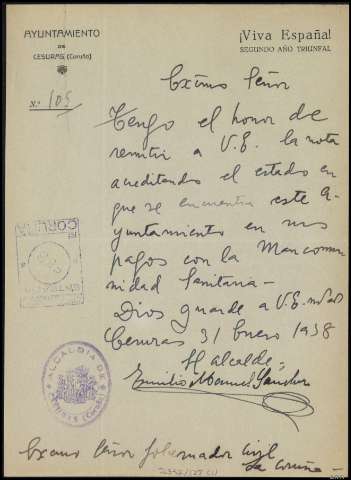 AYUNTAMIENTO
DE
CESURAS (Coruña)
¡Viva España!
SEGUNDO AÑO TRIUNFAL
N.º 105
Excmo Señor
Tengo el honor de
remitir a V.E. la nota
acreditando el estado en
que se encuentra este A-
yuntamiento en sus
pagos con la Mancomu
nidad Sanitaria-
Dios guarde a V.E. m. a.
Cesuras 31 Enero 1938
El alcalde
Emilio Manuel Sánchez
CORUÑA
ALCALDIA DE
CESURAS (Coruña)
Excmo Señor Gobernador Civil
La Coruña -